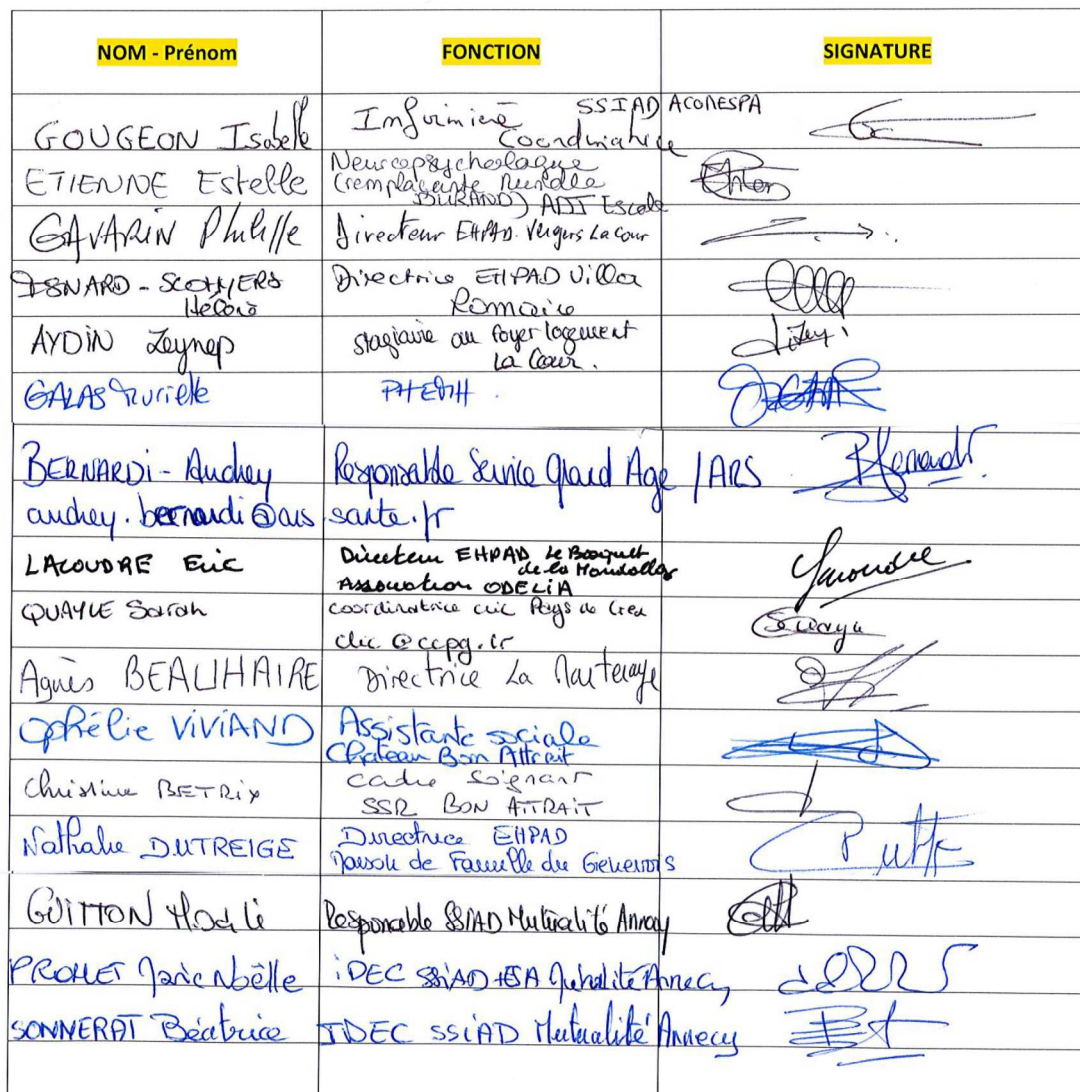 NOM - Prénom FONCTION SIGNATURE
GOUGEON Isabelle Infirmière SSIAD ACOMESPA
Coordinatrice
ETIENNE Estelle Neuropsychologue
(remplaçante
DURAND)
GAVARIN Philippe Directeur EHPAD Vergers La Cour
ISNARD - Directrice EHPAD Villa
Romaine
AYDIN Zeynep stagiaire au foyer logement
La Cour.
GALAS Murielle
BERNARDi - Audrey Responsable Service Grand Age / ARS
audrey.bernardi@ars.sante.fr
LACOUDRE Eric Directeur EHPAD Le Bosquet
de la Mandallaz
Association ODELiA
QUAYLE Sarah coordinatrice clic Pays de Gex
Agnès BEAUHAIRE Directrice La
Ophélie ViViAND Assistante sociale
Château Bon Attrait
Christine BETRIX Cadre Soignant
SSR BON ATTRAiT
Nathalie DUTREIGE Directrice EHPAD
Maison de Famille du Genevois
GUITTON Responsable SSIAD Mutualité Annecy
Marie Noëlle iDEC SSiAD Mutualité Annecy
SONNERAT Béatrice IDEC SSiAD Mutualité Annecy